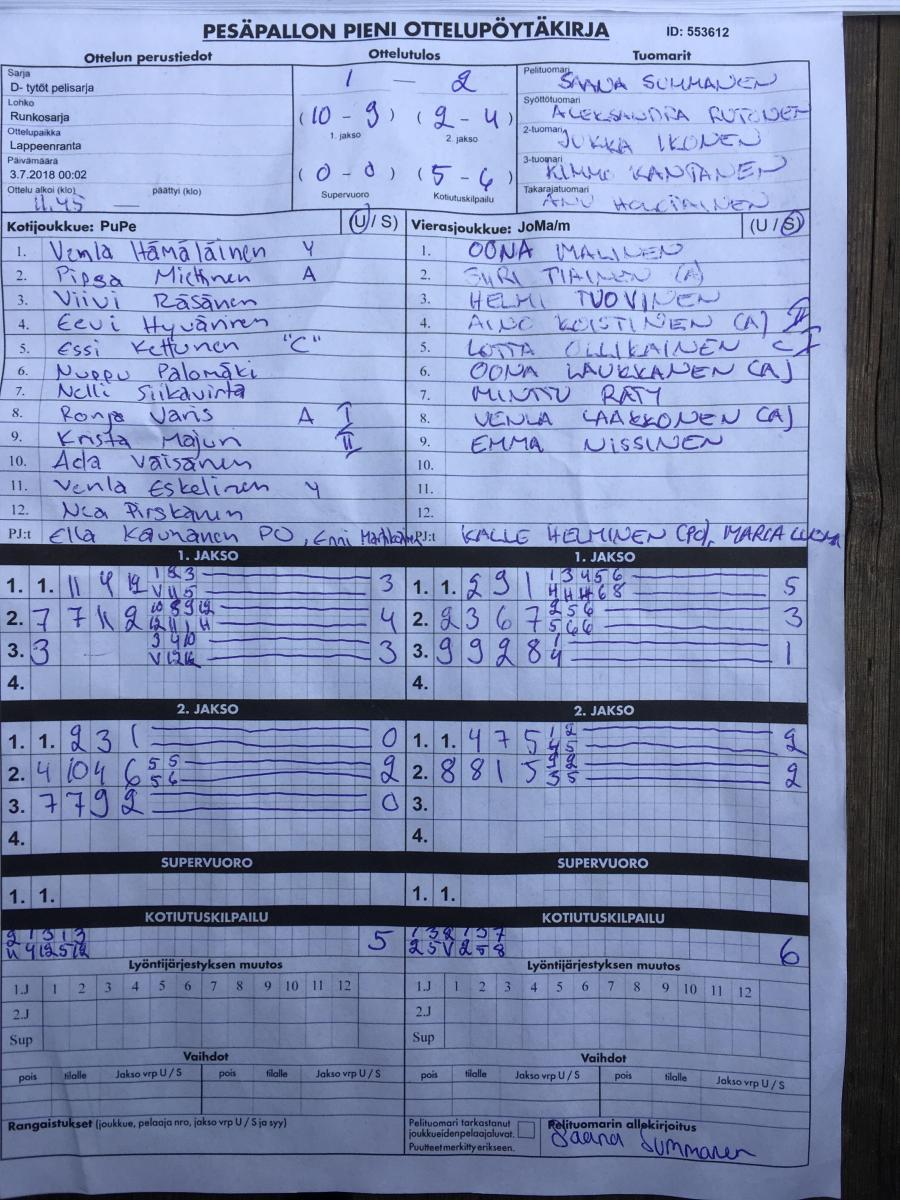 PESÄPALLON PIENI OTTELUPÖYTÄKIRJA ID: 553612
Ottelun perustiedot Ottelutulos Tuomarit
Sarja
D- tytöt pelisarja
Lohko
Runkosarja
Ottelupaikka
Lappeenranta
Päivämäärä
3.7.2018 00:02
Ottelu alkoi (klo) päättyi (klo)
11.45 —
1 — 2
(10 - 9) (2 - 4)
1. jakso 2. jakso
(0 - 0) (5 - 6)
Supervuoro Kotiutuskilpailu
Pelituomari SAANA SUMMANEN
Syöttötuomari ALEKSANDRA RUTONEN
2-tuomari JUKKA IKONEN
3-tuomari KIMMO KANTANEN
Takarajatuomari ANU
Kotijoukkue: PuPe (U / S)
1. Venla Hämäläinen Y
2. Pipsa Miettinen A
3. Viivi Räsänen
4. Eevi Hyvärinen
5. Essi Kettunen "C"
6. Nuppu Palomäki
7. Nelli Siikavirta
8. Ronja Varis A I
9. Krista Majuri II
10. Ada Väisänen
11. Venla Eskelinen Y
12. Nea Pirskanen
PJ:t Ella Kaunanen PO, Enni
Vierasjoukkue: JoMa/m (U / S)
1. OONA MALINEN
2. SIIRI TIAINEN (A)
3. HELMI TUOVINEN
4. AINO KOISTINEN (A) II
5. LOTTA OLLIKAINEN C I
6. OONA LAUKKANEN (A)
7. MINTTU RÄTY
8. VENLA LAAKKONEN (A)
9. EMMA NISSINEN
10.
11.
12.
PJ:t KALLE HELMINEN (PO), MARIA
1. JAKSO 1. JAKSO
1. 1. 11 4 12 3
2. 7 7 11 2 4
3. 3 3
4.
1. 1. 2 9 1 5
2. 2 3 6 7 3
3. 9 9 2 8 1
4.
2. JAKSO 2. JAKSO
1. 1. 2 3 1 0
2. 4 10 4 6 2
3. 7 7 9 2 0
4.
1. 1. 4 7 5 2
2. 8 8 1 5 2
3.
4.
SUPERVUORO SUPERVUORO
1. 1. 1. 1.
KOTIUTUSKILPAILU KOTIUTUSKILPAILU
2 1 3 1 3 5
11 4 12 5 12
1 3 2 1 3 7 6
2 5 V 2 5 8
Lyöntijärjestyksen muutos Lyöntijärjestyksen muutos
1.J 1 2 3 4 5 6 7 8 9 10 11 12 1.J 1 2 3 4 5 6 7 8 9 10 11 12
2.J 2.J
Sup Sup
Vaihdot Vaihdot
pois tilalle Jakso vrp U / S pois tilalle Jakso vrp U / S pois tilalle Jakso vrp U / S pois tilalle Jakso vrp U / S
Rangaistukset (joukkue, pelaaja nro, jakso vrp U / S ja syy)
Pelituomari tarkastanut
joukkueidenpelaajaluvat.
Puutteet merkitty erikseen.
Pelituomarin allekirjoitus
Saana Summanen